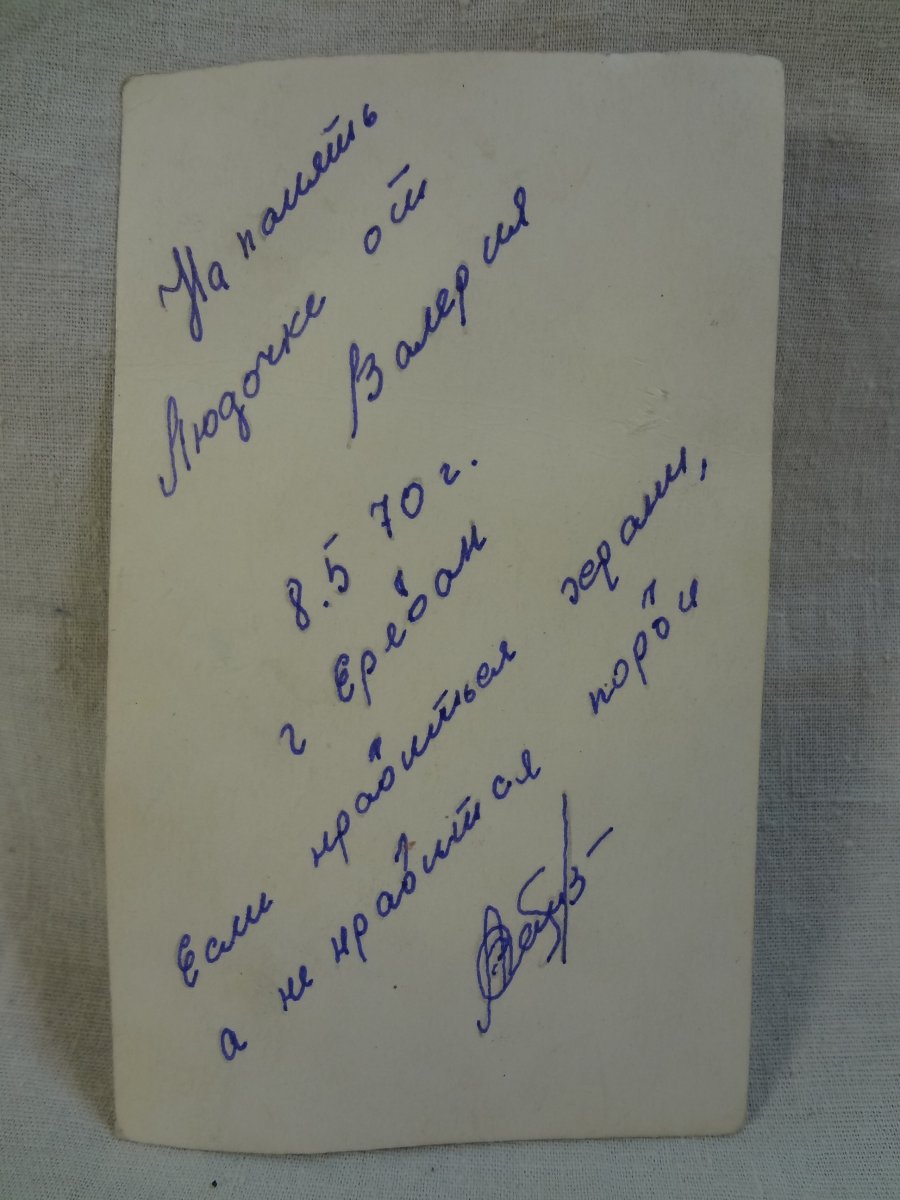 На память
Людочке от
Валерия
8.5 70 г.
г Ереван
Если нравиться храни,
а не нравится порви